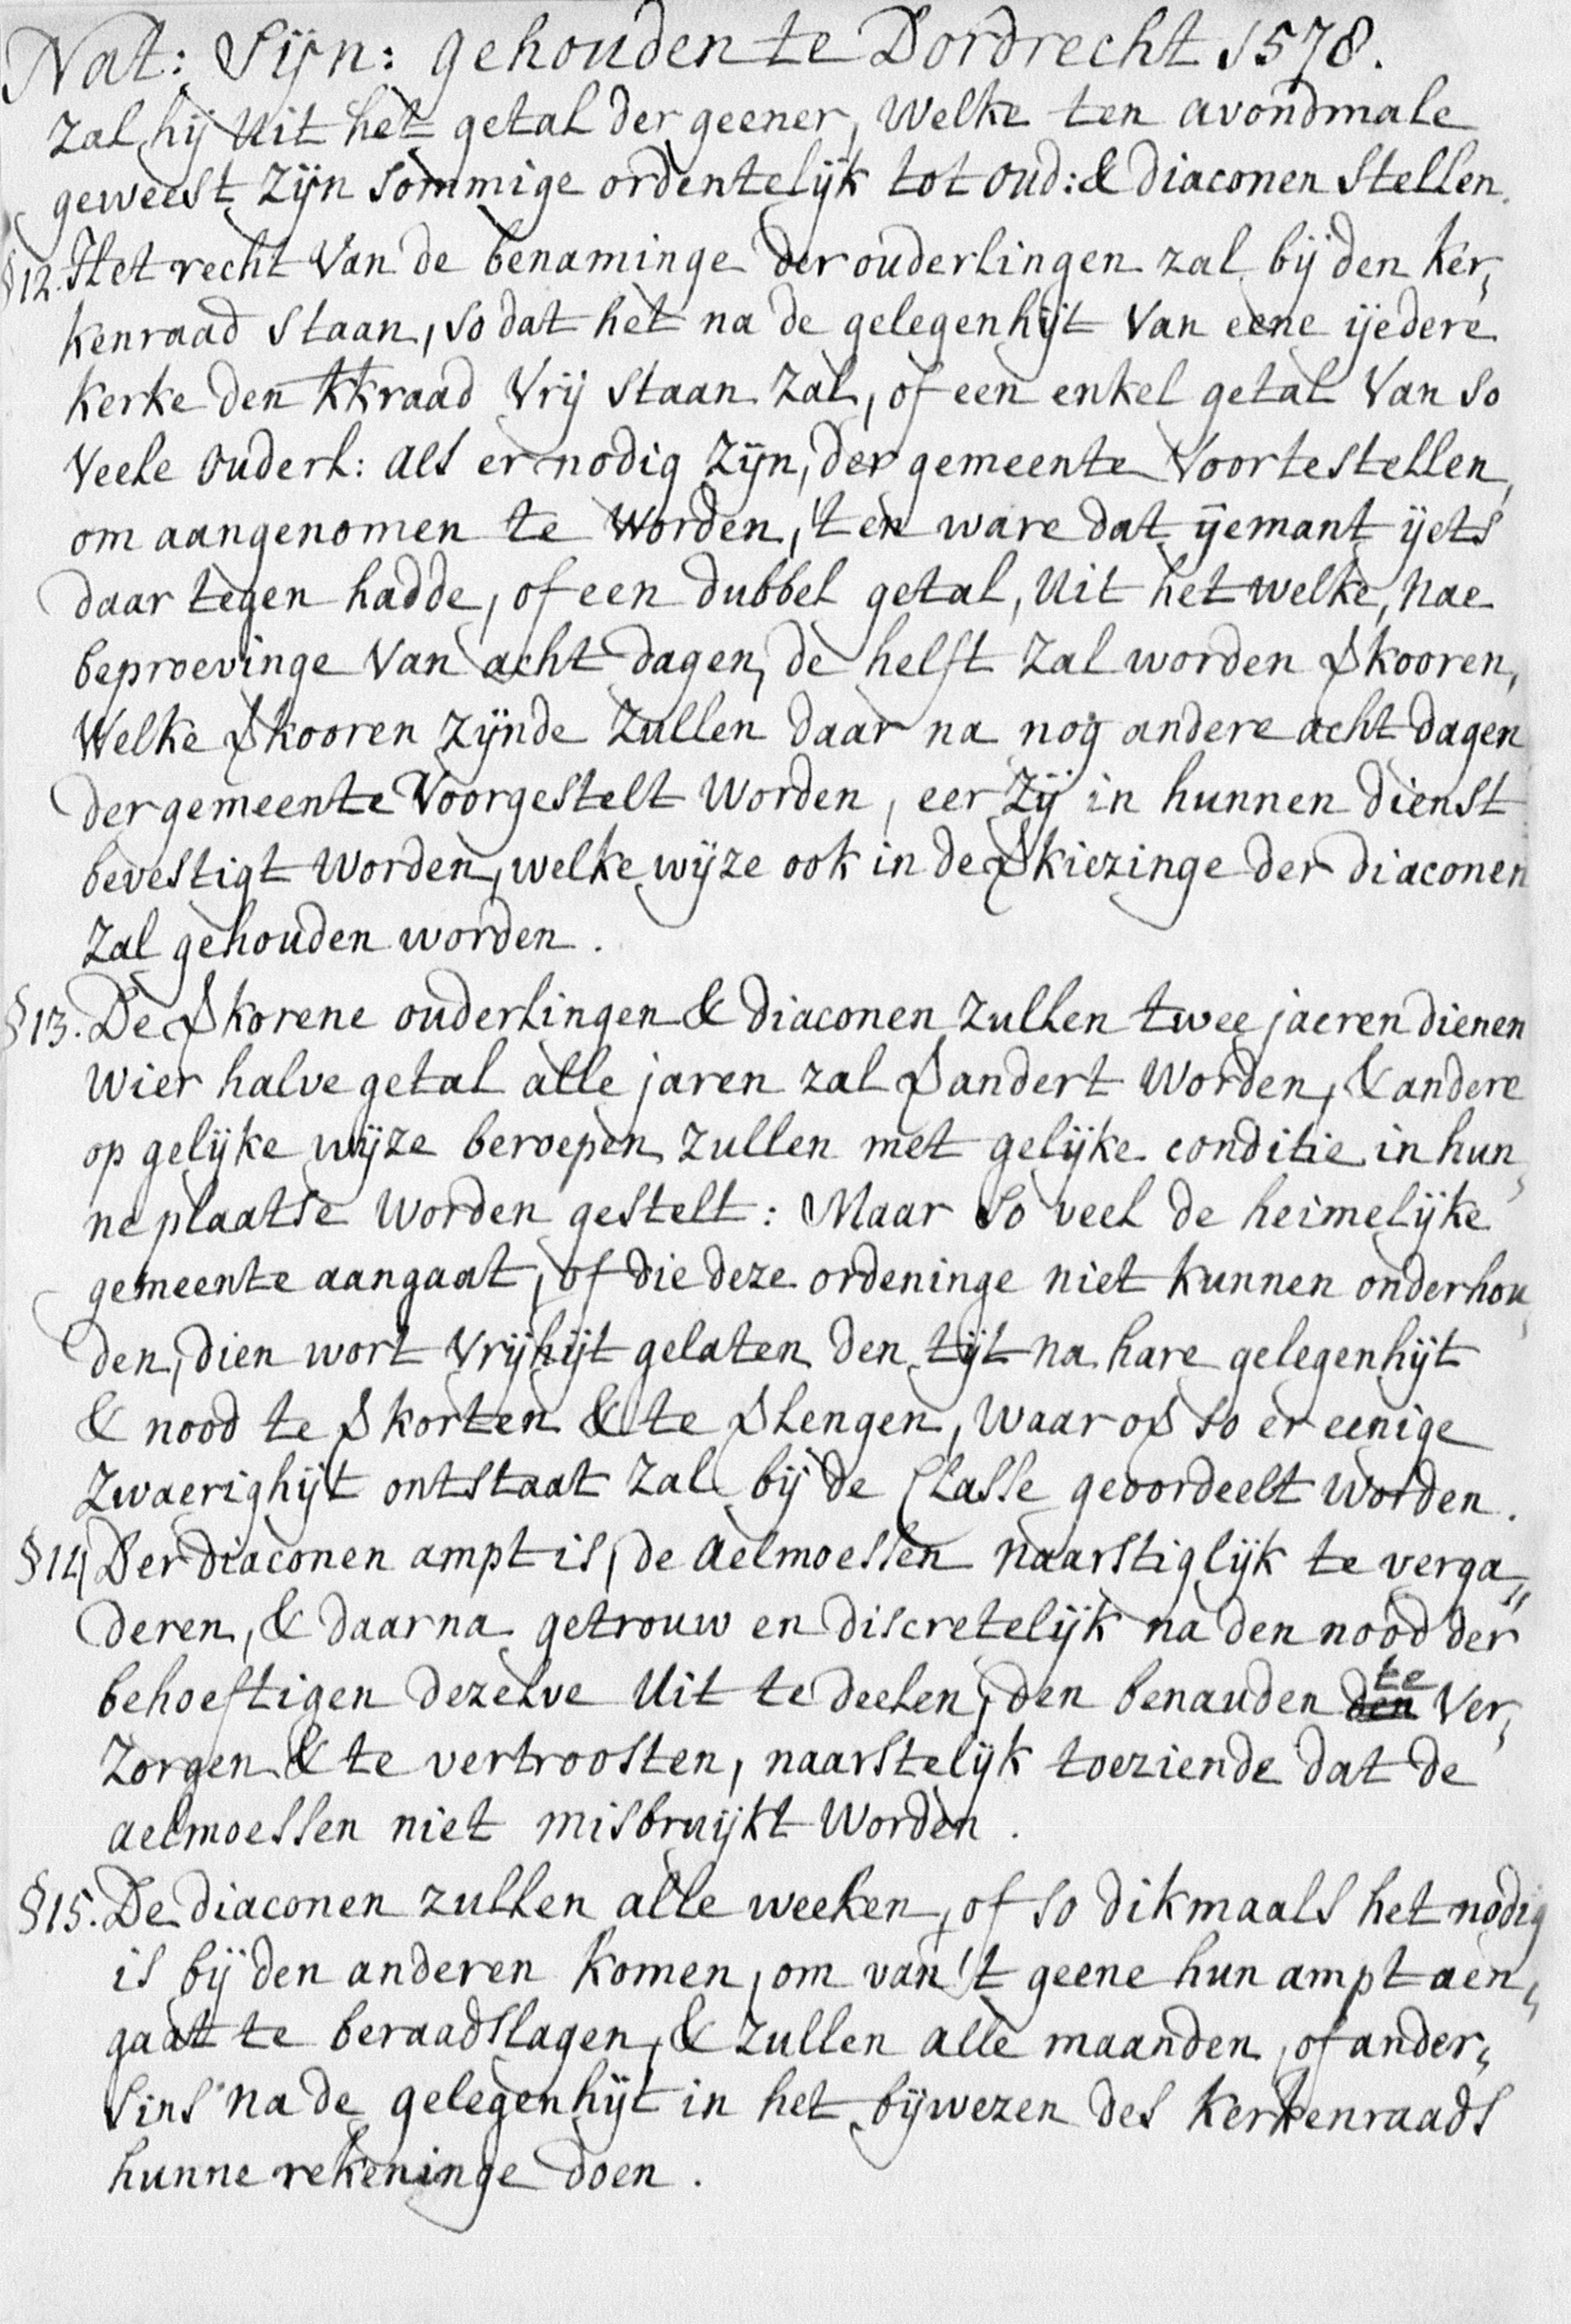 Nat: Sijn: gehouden te Dordrecht 1578.
Zal hij Uit het getal der geener, Welke ten avondmale
geweest zijn sommige ordentelijk tot oud: & diaconen stellen.
§12. Het recht Van de benaminge der ouderlingen zal bij den ker„
kenraad staan, so dat het na de gelegenhijt Van eene ijedere
kerke den kkraad Vrij staan zal, of een enkel getal Van so
Veele ouderl: als er nodig zijn, der gemeente Voortestellen,
om aangenomen te worden, 't en ware dat ijemant ijets
daar tegen hadde, of een dubbel getal, Uit het welke, nae
beproevinge Van acht dagen, de helft zal worden ꝟkooren,
Welke ꝟkooren zijnde zullen daar na nog andere acht dagen
der gemeente Voorgestelt worden, eer zij in hunnen dienst
bevestigt worden, welke wijze ook in de ꝟkiezinge der diaconen
zal gehouden worden.
§13. De ꝟkorene ouderlingen & diaconen zullen twee jaeren dienen
wier halve getal alle jaren zal ꝟandert worden, & andere
op gelijke wijze beroepen zullen met gelijke conditie in hun„
ne plaatse worden gestelt: Maar so veel de heimelijke
gemeente aangaat, of die deze ordeninge niet kunnen onderhou„
den, dien wort Vrijhijt gelaten den tijt na hare gelegenhijt
& nood te ꝟkorten & te ꝟlengen, waar oꝟ so er eenige
zwaerighijt ontstaat zal bij de Classe geoordeelt worden.
§14 Der diaconen ampt is, de aelmoessen naarstiglijk te verga„
deren, & daarna getrouw en discretelijk na den nood der
behoeftigen dezelve Uit te deelen, den benauden den te Ver„
zorgen & te vertroosten, naarstelijk toeziende dat de
aelmoessen niet misbruijkt worden.
§15. De diaconen zullen alle weeken, of so dikmaals het nodig
is bij den anderen komen, om van 't geene hun ampt aen„
gaat te beraadslagen, & zullen alle maanden, of ander„
sins na de gelegenhijt in het bijwezen des kerkenraads
hunne rekeninge doen.